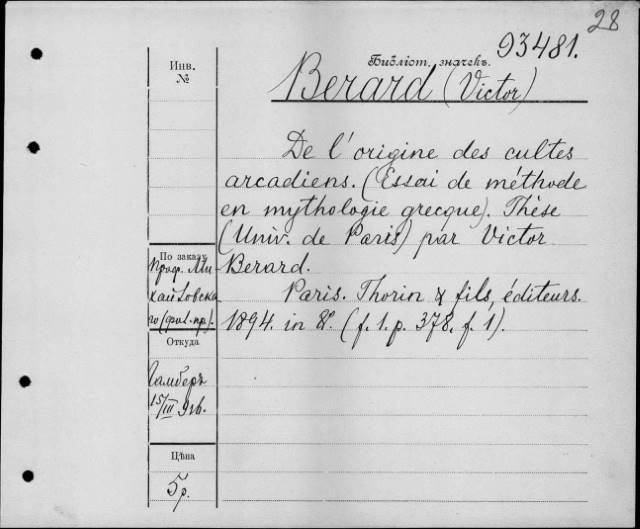 28
93481.
Библіот. значекъ.
Berard (Victor)
De l'origine des cultes
arcadiens. (Essai de méthode
en mythologie grecque). Thèse
(Univ. de Paris) par Victor
Berard.
Paris. Thorin & fils, éditeurs.
1894. in 8°. (f. 1. p. 378. f. 1).
Инв.
№
По заказу
Проф. Ми-
хайловска
го (фил. пр).
Откуда
Гамберъ
15/III 96.
Цѣна
5 р.